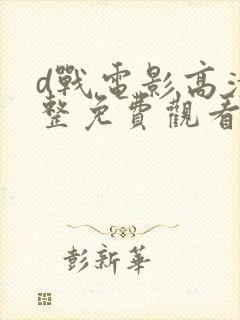 d戰電影高清
整免費觀看
彭新華